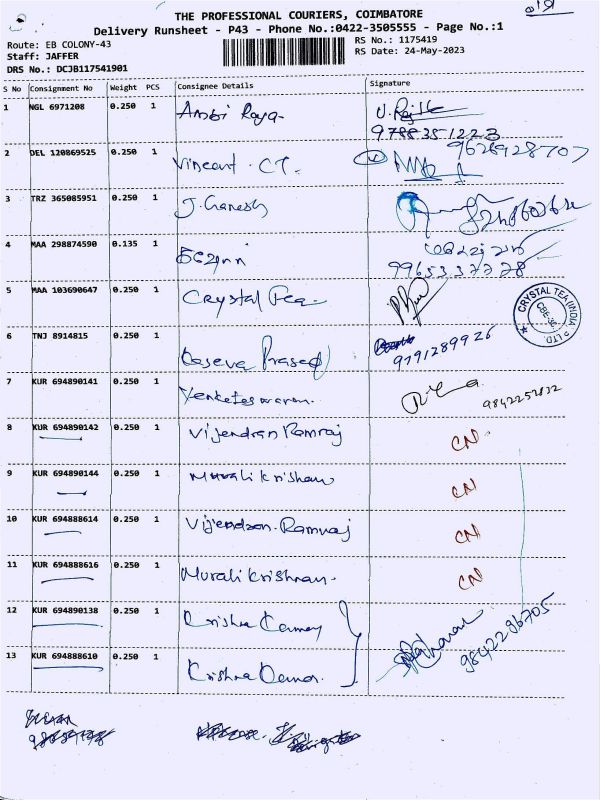 THE PROFESSIONAL COURIERS, COIMBATORE
Delivery Runsheet - P43 - Phone No.:0422-3505555 - Page No.:1
Route: EB COLONY-43
RS No.: 1175419
Staff: JAFFER
RS Date: 24-May-2023
DRS No.: DCJB117541901
S No Consignment No Weight PCS Consignee Details Signature
1 NGL 6971208 0.250 1
9788351223
2 DEL 120869525 0.250 1 Vincent . CT. 9628928707
3 TRZ 365085951 0.250 1 J. Ganesh
4 MAA 298874590 0.135 1
9965337778
5 MAA 103690647 0.250 1 Crystal Tea CRYSTAL TEA (INDIA) P LTD.
6 TNJ 8914815 0.250 1 Prasad 9791289926
7 KUR 694890141 0.250 1 Venkateswaran.
8 KUR 694890142 0.250 1 Vijendran Ramraj CN
9 KUR 694890144 0.250 1 Murali Krishnan CN
10 KUR 694888614 0.250 1 Vijendran. Ramraj CN
11 KUR 694888616 0.250 1 Murali Krishnan. CN
12 KUR 694890138 0.250 1 Krishna 9842296705
13 KUR 694888610 0.250 1 Krishna